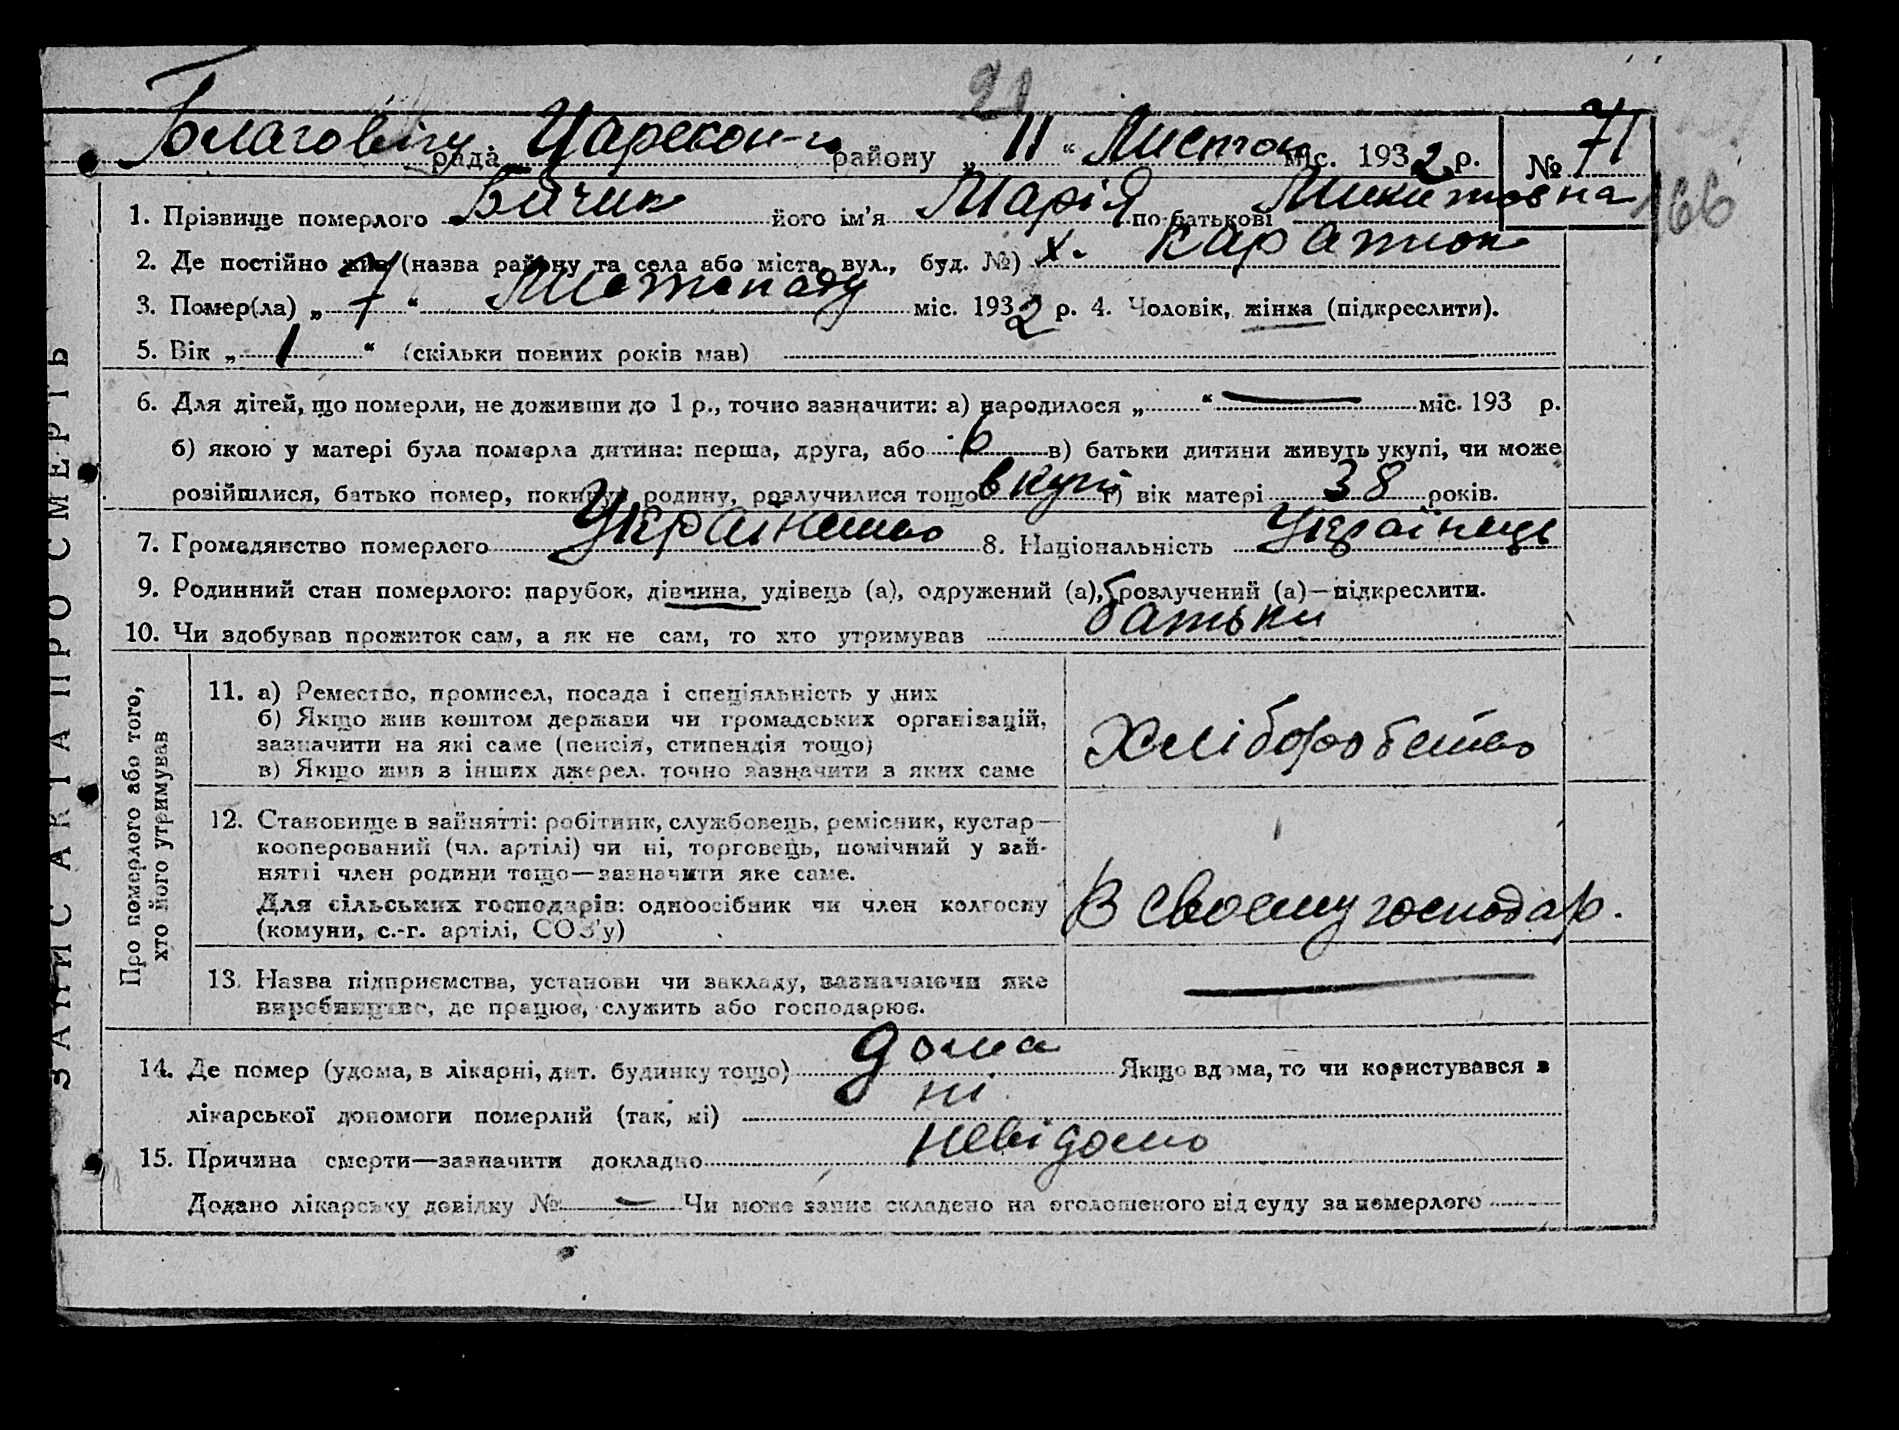 21
Благовіщ рада Царекон-го району „11“ Листоп міс. 1932 р. № 71
166
1. Прізвище померлого Бичик його ім'я Марія по-батькові Микитовна
2. Де постійно жив (назва району та села або міста, вул., буд. №) х. Каратюк
3. Помер(ла) „7“ Листопаду міс. 1932 р. 4. Чоловік, жінка (підкреслити).
5. Вік „1“ (скільки повних років мав)
6. Для дітей, що померли, не доживши до 1 р., точно зазначити: а) народилося „ “ — міс. 193 р.
б) якою у матері була померла дитина: перша, друга, або 6 в) батьки дитини живуть укупі, чи може
розійшлися, батько помер, покинув родину, розлучилися тощо вкупі г) вік матері 38 років.
7. Громадянство померлого Українство 8. Національність Українець
9. Родинний стан померлого: парубок, дівчина, удівець (а), одружений (а), розлучений (а)—підкреслити.
10. Чи здобував прожиток сам, а як не сам, то хто утримував батьки
ЗАПИС АКТА ПРО СМЕРТЬ
Про померлого або того,
хто його утримував
11. а) Ремество, промисел, посада і спеціяльність у них
б) Якщо жив коштом держави чи громадських організацій,
зазначити на які саме (пенсія, стипендія тощо)
в) Якщо жив з інших джерел, точно зазначити з яких саме
Хліборобство
12. Становище в зайнятті: робітник, службовець, ремісник, кустар—
кооперований (чл. артілі) чи ні, торговець, помічний у зай-
нятті член родини тощо—зазначити яке саме.
Для сільських господарів: одноосібник чи член колгоспу
(комуни, с.-г. артілі, СОЗ'у)
В своєму господар.
13. Назва підприємства, установи чи закладу, зазначаючи яке
виробництво, де працює, служить або господарює.
—
14. Де помер (удома, в лікарні, дит. будинку тощо) дома Якщо вдома, то чи користувався з
лікарської допомоги померлий (так, ні) ні
15. Причина смерти—зазначити докладно невідомо
Додано лікарську довідку № — Чи може запис складено на оголошеного від суду за померлого